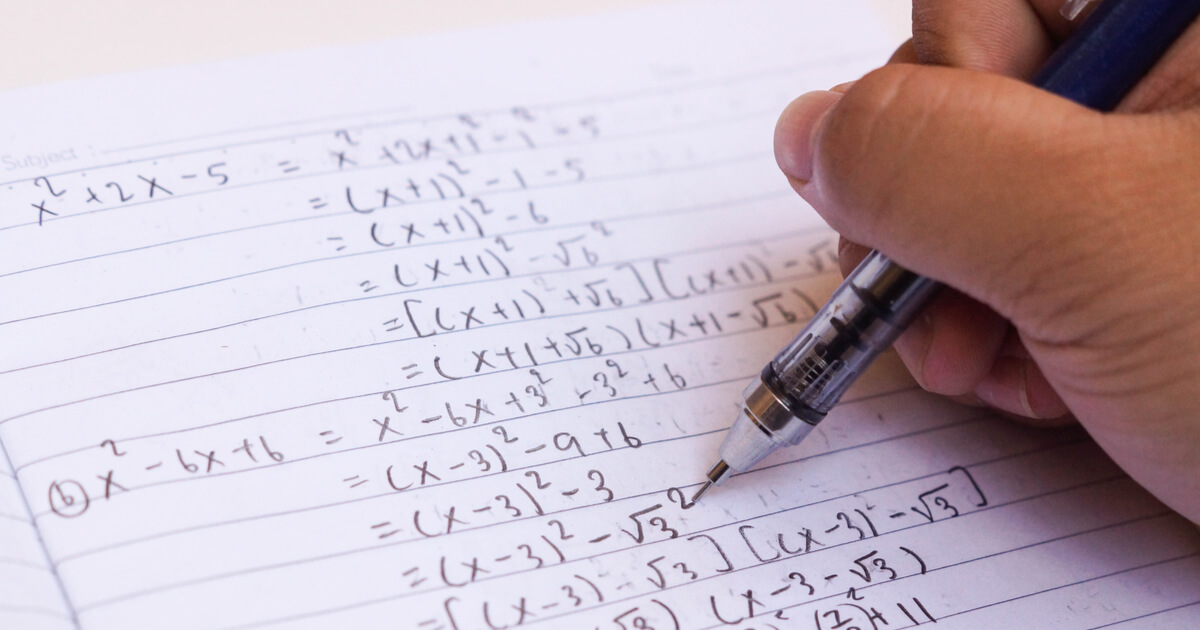 Subject :
x² + 2x - 5 = x² + 2x + 1² - 1² - 5
= (x+1)² - 1 - 5
= (x+1)² - 6
= (x+1)² - √6²
= [(x+1) + √6] [(x+1) - √6
= (x+1+√6) (x+1-√6)
(b) x² - 6x + 6 = x² - 6x + 3² - 3² + 6
= (x-3)² - 9 + 6
= (x-3)² - 3
= (x-3)² - √3²
= [(x-3) - √3] [(x-3) - √3]
(x-3-√3)
+ 11